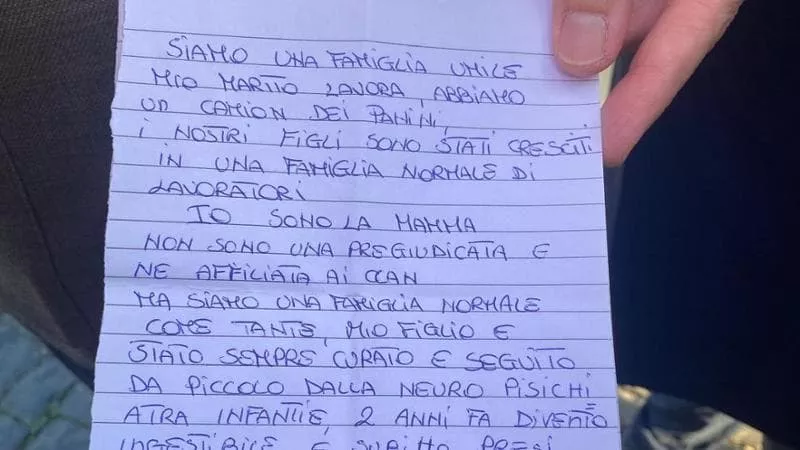 SIAMO UNA FAMIGLIA UMILE
MIO MARITO LAVORA, ABBIAMO
UN CAMION DEI PANINI,
I NOSTRI FIGLI SONO STATI CRESCITI
IN UNA FAMIGLIA NORMALE DI
LAVORATORI
IO SONO LA MAMMA
NON SONO UNA PREGIUDICATA E
NE AFFILIATA AI CLAN
MA SIAMO UNA FAMIGLIA NORMALE
COME TANTE, MIO FIGLIO E
STATO SEMPRE CURATO E SEGUITO
DA PICCOLO DALLA NEURO PISICHI=
ATRA INFANTIE, 2 ANNI FA DIVENTO
INGESTIBILE E SUBITO PRESI